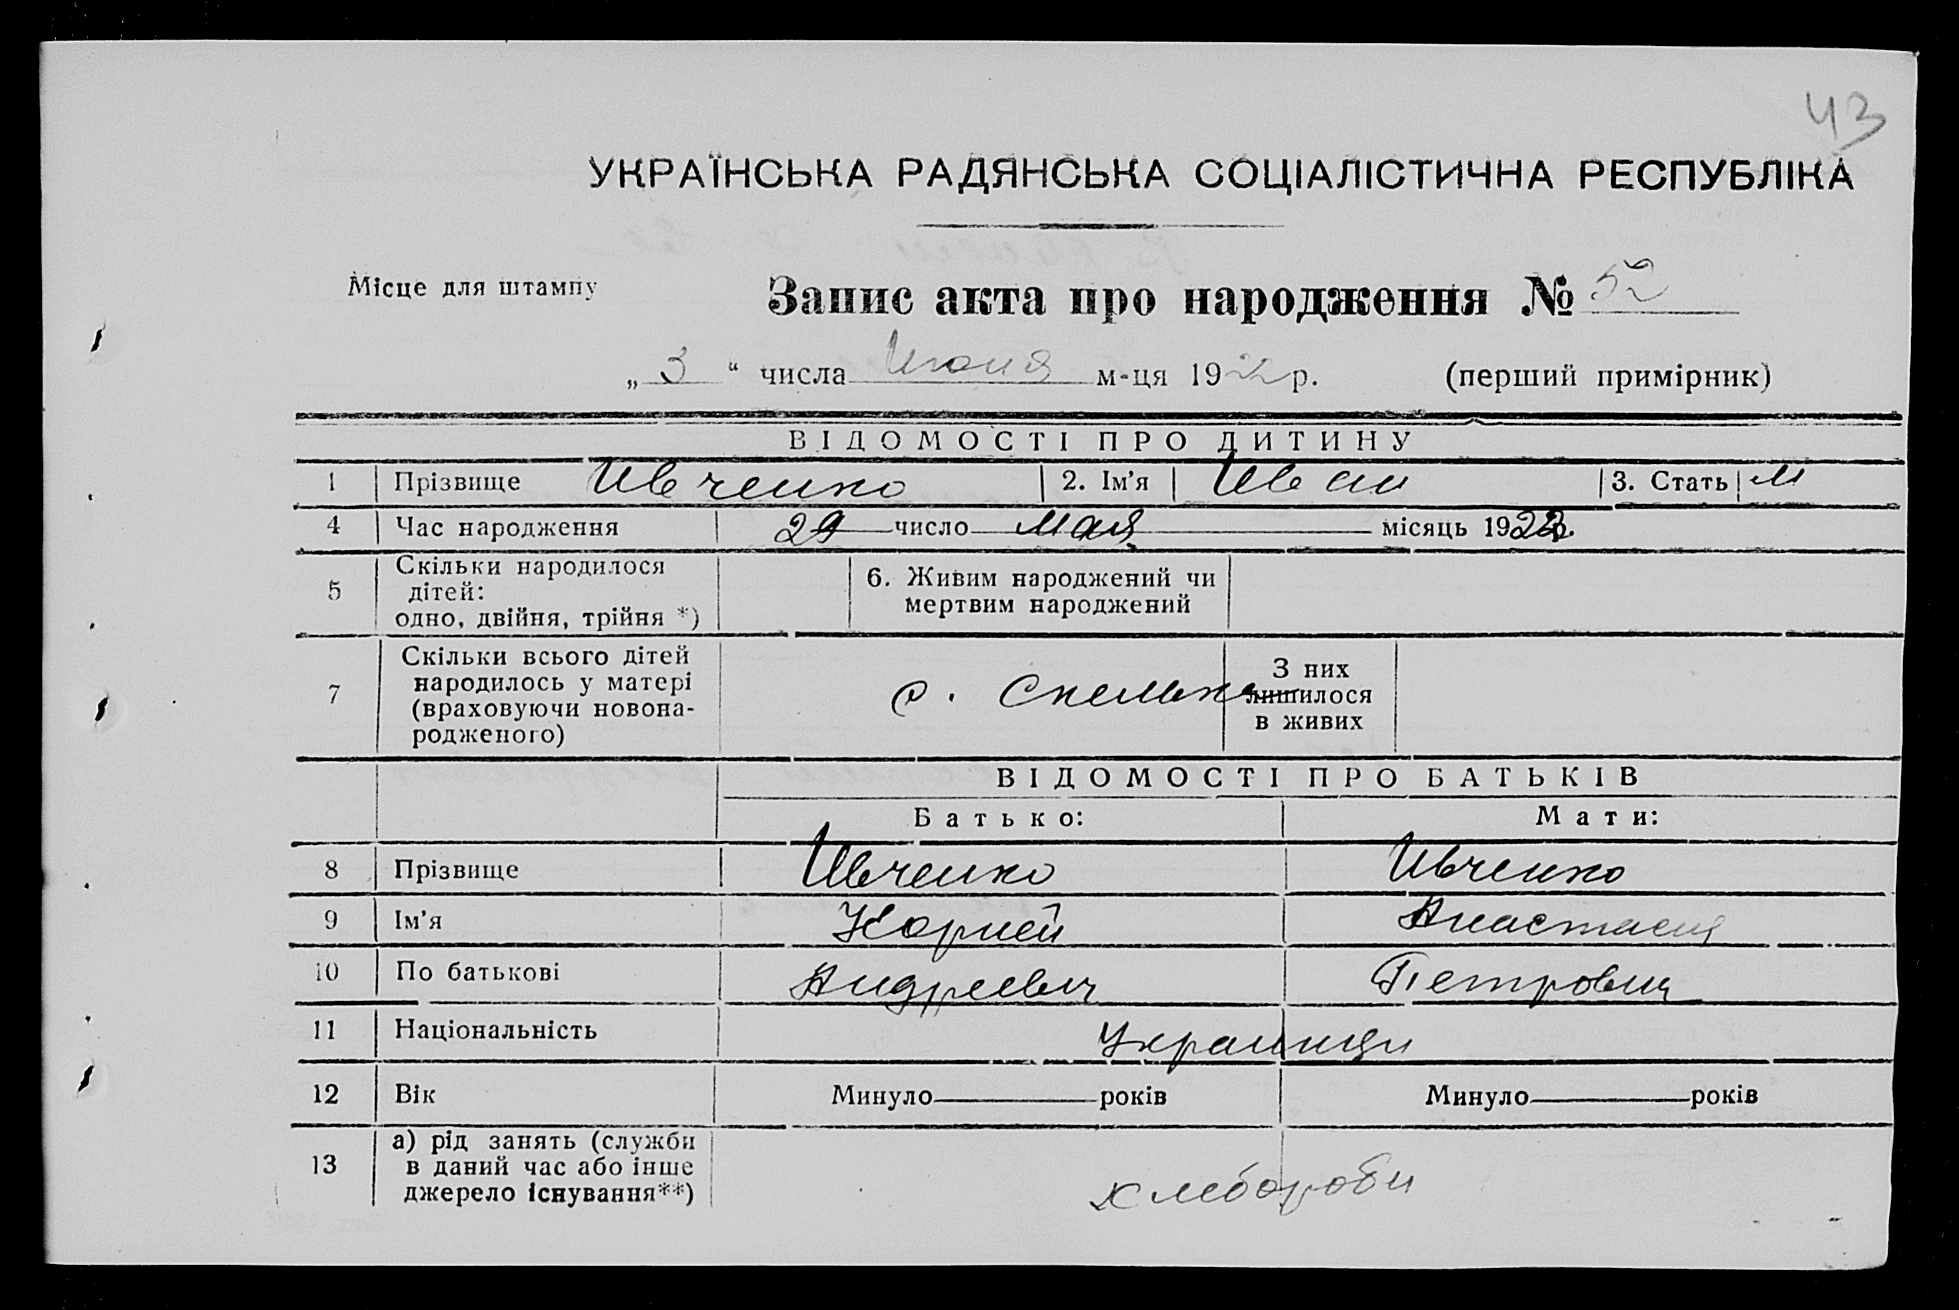 43
УКРАЇНСЬКА РАДЯНСЬКА СОЦІАЛІСТИЧНА РЕСПУБЛІКА
Місце для штампу
Запис акта про народження № 52
„ 3 “ числа Июня м-ця 1922 р. (перший примірник)
ВІДОМОСТІ ПРО ДИТИНУ
1 Прізвище Ивченко 2. Ім’я Иван 3. Стать М
4 Час народження 29 число Мая місяць 1922
Скільки народилося
5 дітей: 6. Живим народжений чи
одно, двійня, трійня *) мертвим народжений
Скільки всього дітей З них
7 народилось у матері с. Скельки лишилося
(враховуючи новона- в живих
родженого)
ВІДОМОСТІ ПРО БАТЬКІВ
Батько: Мати:
8 Прізвище Ивченко Ивченко
9 Ім’я Корней Анастасия
10 По батькові Андреевич Петровна
11 Національність Украинци
12 Вік Минуло років Минуло років
а) рід занять (служби
13 в даний час або інше хлебороби
джерело існування**)